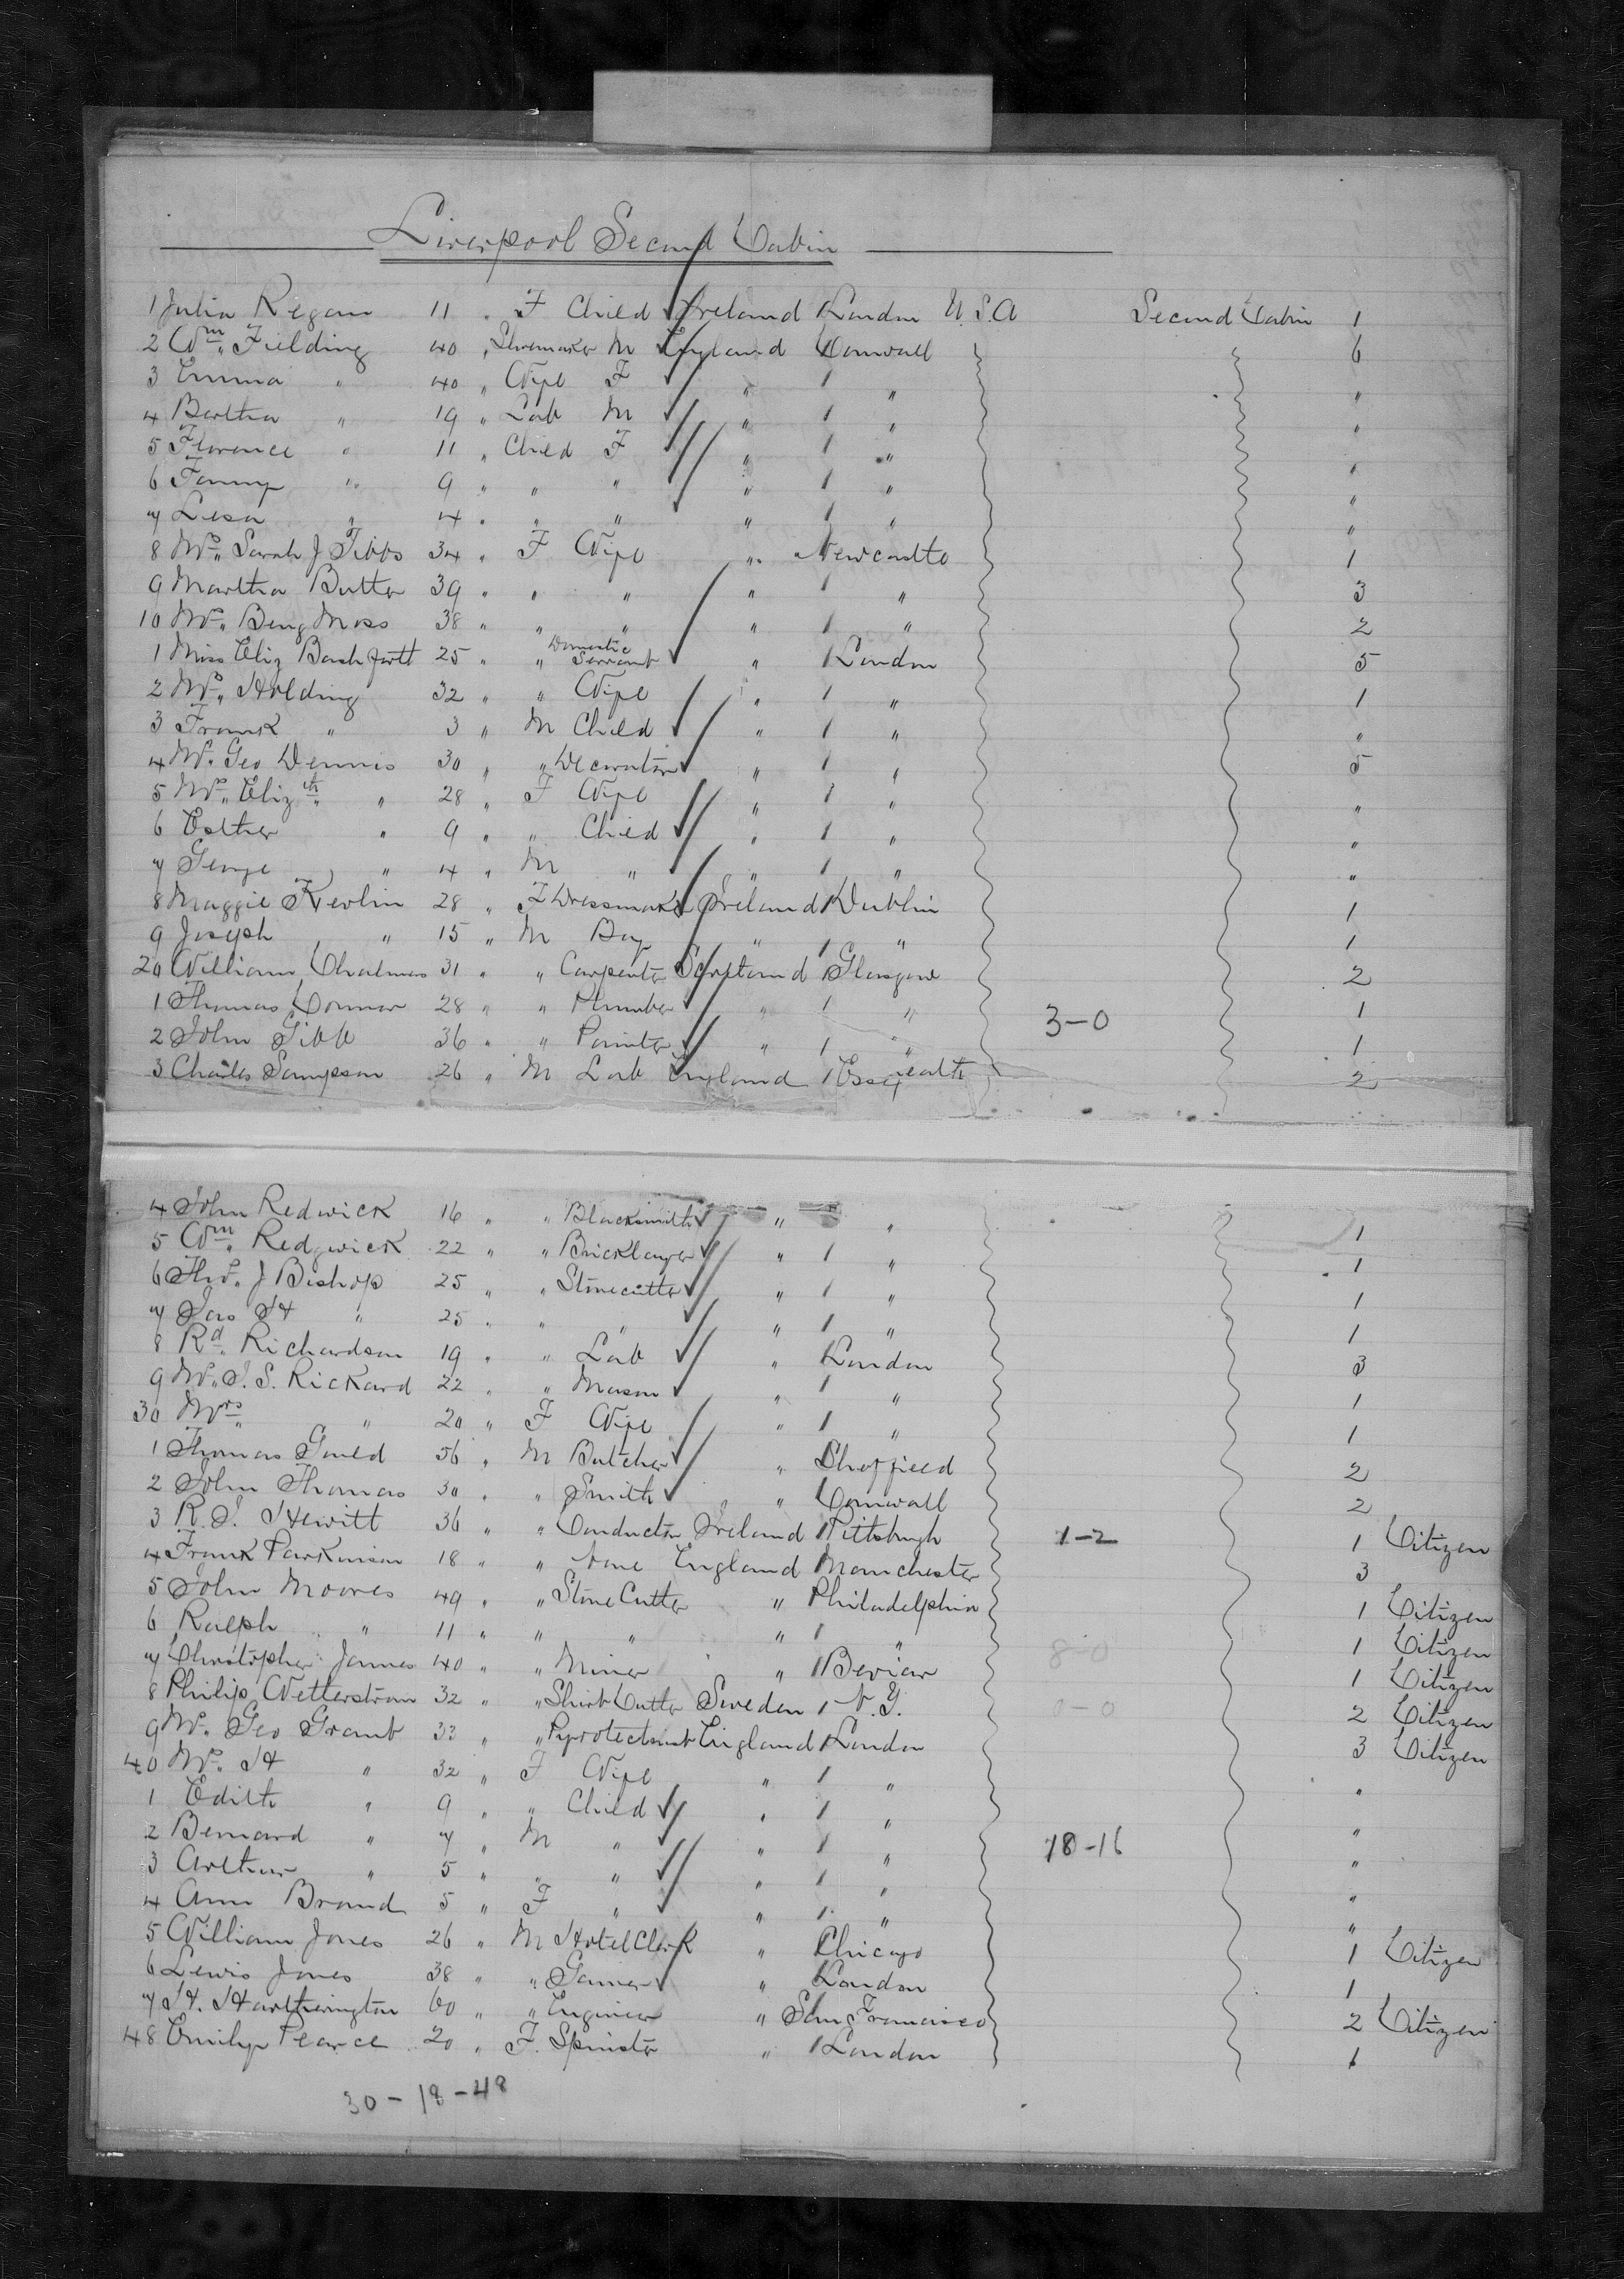 Liverpool Second Cabin
1 Julia Regan 11 " F Child Ireland London U.S.A Second Cabin 1
2 Wm. Fielding 40 " Shoemaker M England Cornwall 6
3 Emma " 40 " Wife F " " "
4 Bertha " 19 " Lab M " " "
5 Florence " 11 " Child F " " "
6 Fanny " 9 " " " " " "
7 Lesa " 4 " " " " " "
8 Mrs. Sarah J Tibbs 34 " F Wife " Newcastle 1
9 Martha Butter 39 " " " " " 3
10 Mrs. Benj Moss 38 " " " " " 2
1 Miss Eliz Bashfortt 25 " " Domestic Servant " London 5
2 Mrs. Holding 32 " " Wife " " 1
3 Frank " 3 " M Child " " "
4 Mr. Geo Dennis 30 " " Decorator " " 5
5 Mrs. Elizth " 28 " F Wife " " "
6 Esther " 9 " " Child " " "
7 George " 4 " M " " " "
8 Maggie Kevlin 28 " F Dressmaker Ireland Dublin 1
9 Joseph " 15 " M Boy " " 1
20 William Chalmers 31 " " Carpenter Scotland Glasgow 2
1 Thomas Connor 28 " " Plumber " " 3-0 1
2 John Gibb 36 " " Painter " " 1
3 Charles Sampson 26 " M Lab England 2
4 John Redwick 16 " " Blacksmith " " 1
5 Wm. Redgwick 22 " " Bricklayer " " 1
6 Thos. J Bishop 25 " " Stonecutter " " 1
7 Jas H " 25 " " " " " 1
8 Rd. Richardson 19 " " Lab " London 3
9 Mr. J. S. Rickard 22 " " Mason " " 1
30 Mrs " 20 " F Wife " " 1
1 Thomas Gould 56 " M Butcher " Sheffield 2
2 John Thomas 30 " " Smith " Cornwall 2
3 R. J. Hewitt 36 " " Conductor Ireland Pittsburgh 1-2 1 Citizen
4 Frank Parkinson 18 " " None England Manchester 3
5 John Moores 49 " " Stone Cutter " Philadelphia 1 Citizen
6 Ralph " 11 " " " " " 1 Citizen
7 Christopher James 40 " " Miner " Beviar 8-0 1 Citizen
8 Philip Wetterstrom 32 " " Shirt Cutter Sweden N.Y. 0-0 2 Citizen
9 Mr. Geo Grant 33 " " Pyrotechnist England London 3 Citizen
40 Mrs. H " 32 " F Wife " " "
1 Edith " 9 " " Child " " "
2 Bernard " 7 " M " " " 18-16 "
3 Arthur " 5 " " " " " "
4 Ann Brand 5 " F " " " "
5 William Jones 26 " M Hotel Clerk " Chicago 1 Citizen
6 Lewis Jones 38 " " " London 1
7 H. Hartherington 60 " " Engineer " San Francisco 2 Citizen
48 Emily Pearce 20 " F. Spinster " London 1
30-18-48